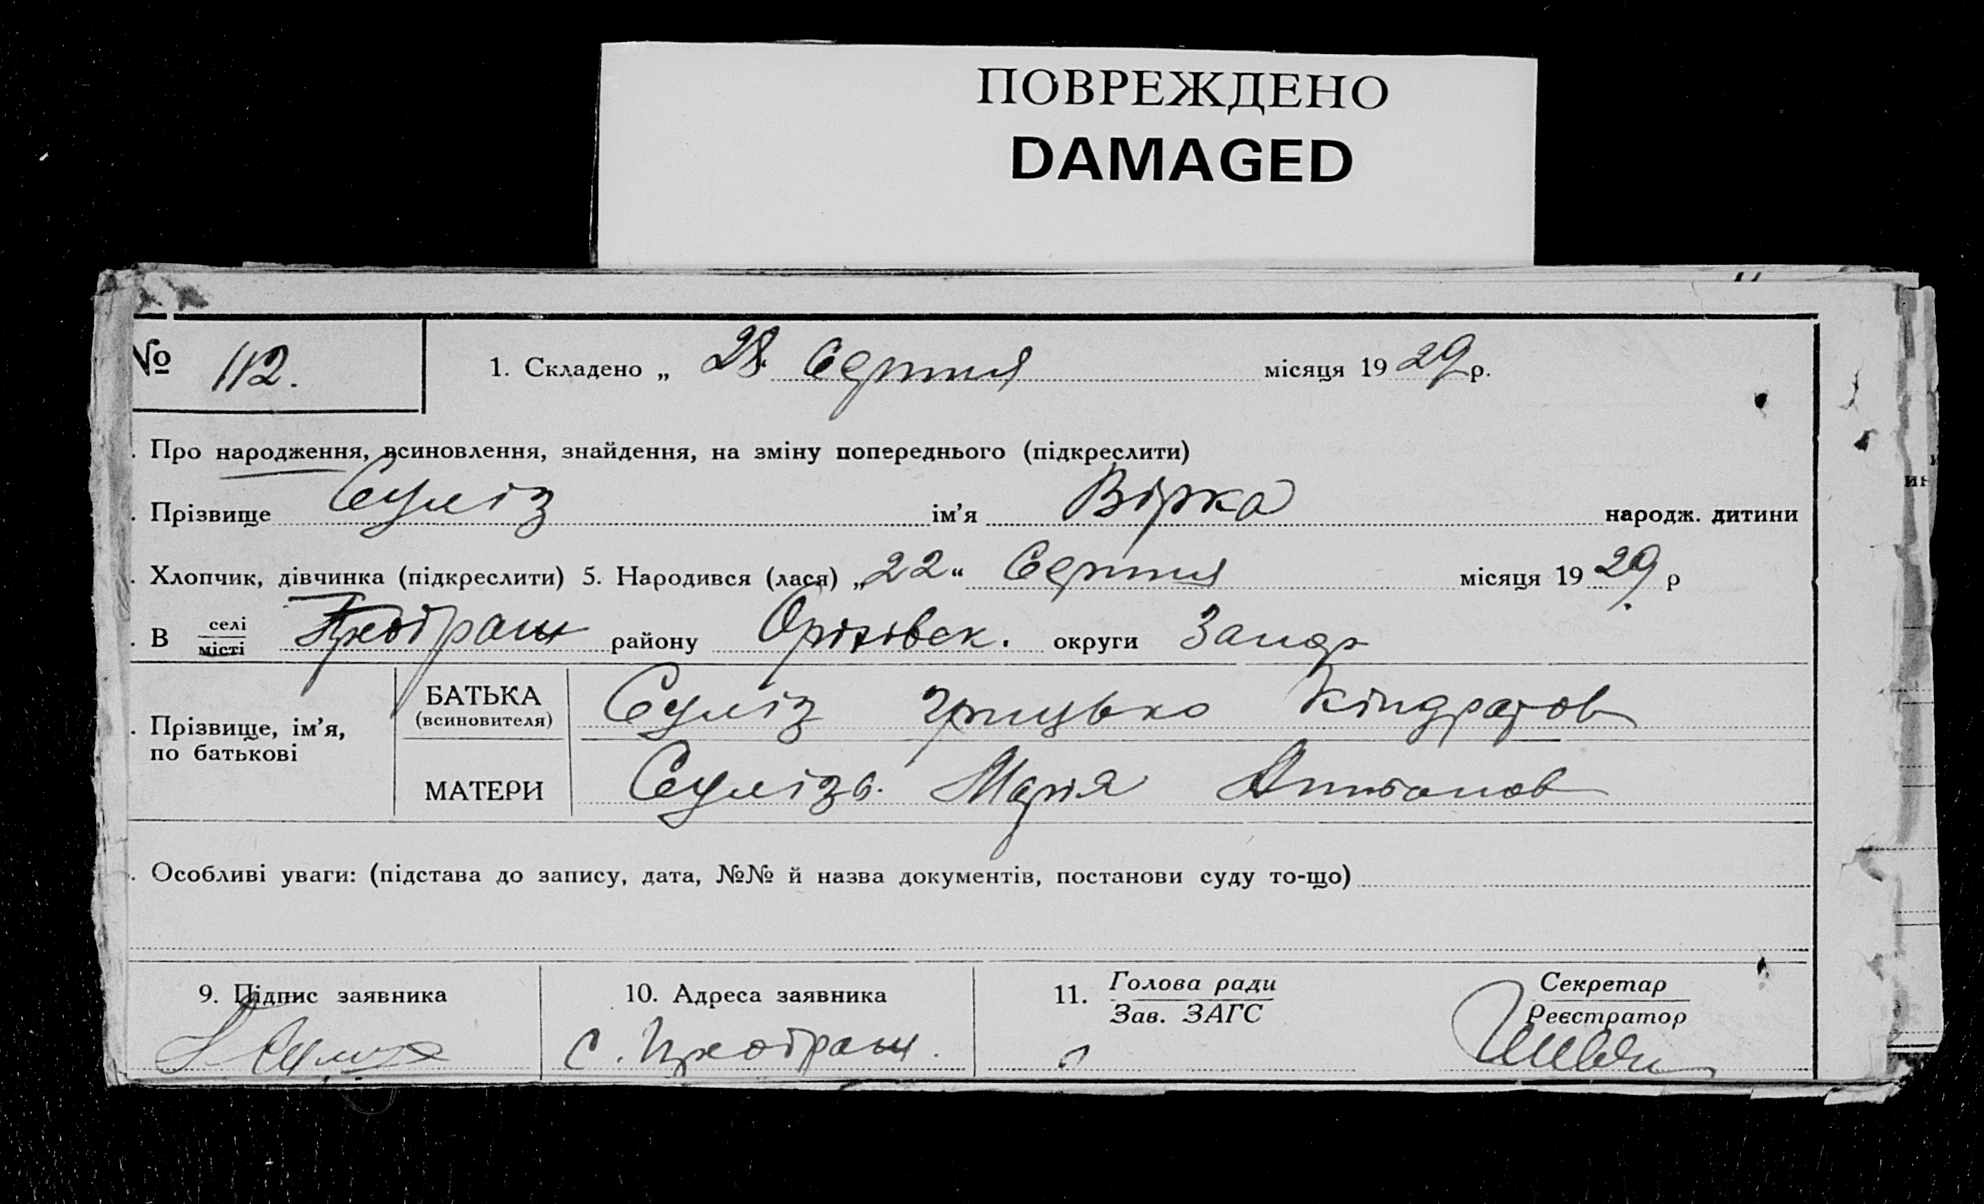 ПОВРЕЖДЕНО
DAMAGED
№ 112. 1. Складено „ 28 Серпня місяця 1929 р.
Про народження, всиновлення, знайдення, на зміну попереднього (підкреслити)
Прізвище Суліз ім’я Вірка народж. дитини
Хлопчик, дівчинка (підкреслити) 5. Народився (лася) „22“ Серпня місяця 1929 р
В селі
місті району Оріхівск. округи Запор
Прізвище, ім’я,
по батькові
БАТЬКА
(всиновителя)
Суліз Грицько Кіндратов
МАТЕРИ Суліза. Марія
Особливі уваги: (підстава до запису, дата, №№ й назва документів, постанови суду то-що)
9. Підпис заявника 10. Адреса заявника 11. Голова ради
Зав. ЗАГС
Секретар
Реєстратор
с.